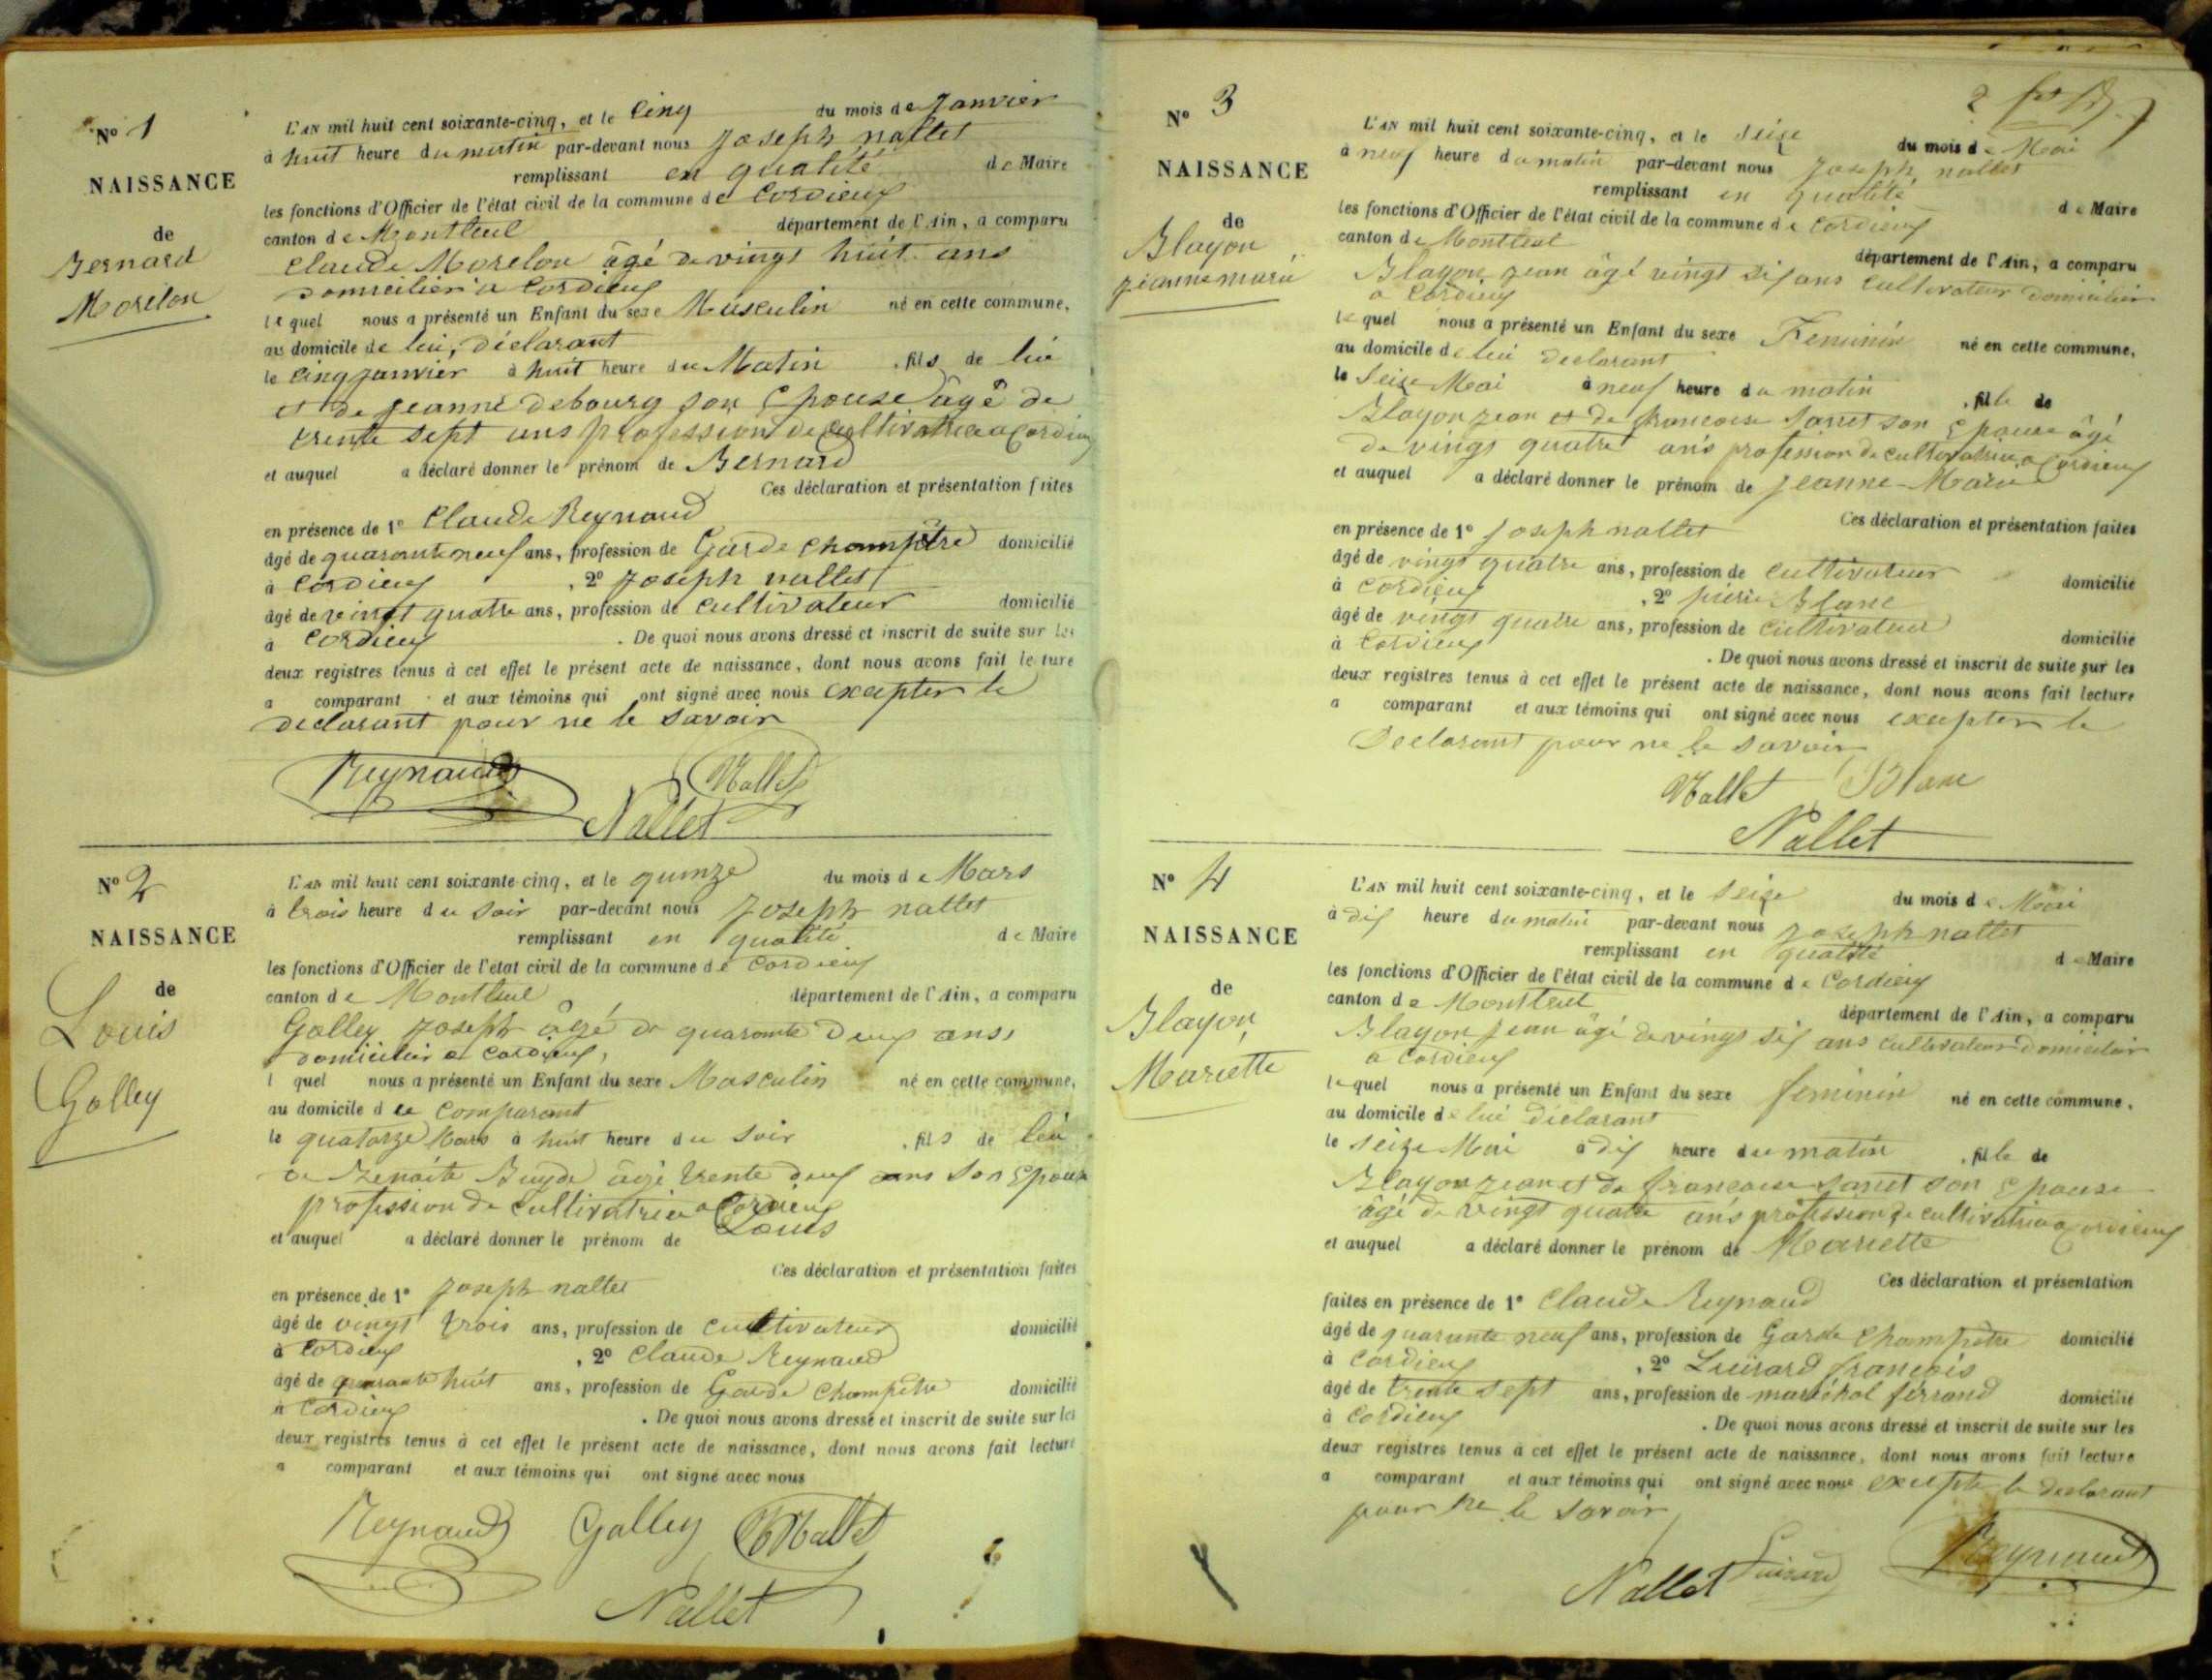 Nº 1
NAISSANCE
de
Bernard
Morelon
L'AN mil huit cent soixante-cinq, et le Cinq du mois de Janvier
à huit heure du mutin par-devant nous Joseph nallet
remplissant en qualité de Maire
les fonctions d'Officier de l'état civil de la commune de Cordieux
canton de Montluel département de l'Ain, a comparu
Claude Morelon âgé de vingt huit ans
domicilier a Cordieux
lequel nous a présenté un Enfant du sexe Masculin né en cette commune,
au domicile de lui, déclarant
le Cinq janvier à huit heure du Matin , fils de lui
et de jeanne debourg son Epouse âgé de
trente sept ans profession de Cultivatrice a Cordieux
et auquel a déclaré donner le prénom de Bernard
Ces déclaration et présentation faites
en présence de 1º Claude Reynaud
âgé de quarante neuf ans, profession de Garde Champêtre domicilié
à Cordieux , 2º Joseph nallet
âgé de vingt quatre ans, profession de Cultivateur domicilié
à Cordieux . De quoi nous avons dressé et inscrit de suite sur les
deux registres tenus à cet effet le présent acte de naissance, dont nous avons fait lecture
a comparant et aux témoins qui ont signé avec nous excepter le
declarant pour ne le savoir
Reynaud Nallet
Nallet
Nº 2
NAISSANCE
de
Louis
Galley
L'AN mil huit cent soixante-cinq, et le quinze du mois de Mars
à trois heure du soir par-devant nous Joseph nallet
remplissant en qualité de Maire
les fonctions d'Officier de l'état civil de la commune de Cordieux
canton de Montluel département de l'Ain, a comparu
Galley Joseph âgé de quarante deux ans
domicilier a Cordieux,
l quel nous a présenté un Enfant du sexe Masculin né en cette commune,
au domicile d le Comparant
le quatorze Mars à huit heure du soir , fils de lui
de Benoite Buyde âgé trente deux ans son Epouse
profession de Cultivatrice a Cordieux
et auquel a déclaré donner le prénom de Louis
Ces déclaration et présentation faites
en présence de 1º Joseph nallet
âgé de vingt trois ans, profession de Cultivateur domicilié
à Cordieux , 2º Claude Reynaud
âgé de quarante huit ans, profession de Garde Champêtre domicilié
à Cordieux . De quoi nous avons dressé et inscrit de suite sur les
deux registres tenus à cet effet le présent acte de naissance, dont nous avons fait lecture
a comparant et aux témoins qui ont signé avec nous
Reynaud Galley Nallet
Nallet
2
Nº 3
NAISSANCE
de
Blayon
jeanne marie
L'AN mil huit cent soixante-cinq, et le seize du mois de Mai
à neuf heure du matin par-devant nous Joseph nallet
remplissant en qualité de Maire
les fonctions d'Officier de l'état civil de la commune de Cordieux
canton de Montluel département de l'Ain, a comparu
Blayon jean âgé vingt six ans Cultivateur domicilier
a Cordieux
lequel nous a présenté un Enfant du sexe Feminin né en cette commune,
au domicile de lui declarant
le seize Mai à neuf heure du matin , fille de
Blayon jean et de francoise sarret son Epouse âgé
de vingt quatre ans profession de cultivatrice a Cordieux
et auquel a déclaré donner le prénom de jeanne-Marie
Ces déclaration et présentation faites
en présence de 1º Joseph nallet
âgé de vingt quatre ans, profession de Cultivateur domicilié
à Cordieux , 2º pierre Blanc
âgé de vingt quatre ans, profession de Cultivateur domicilié
à Cordieux . De quoi nous avons dressé et inscrit de suite sur les
deux registres tenus à cet effet le présent acte de naissance, dont nous avons fait lecture
a comparant et aux témoins qui ont signé avec nous excepter le
Declarant pour ne le savoir
Nallet Blanc
Nallet
Nº 4
NAISSANCE
de
Blayon
Mariette
L'AN mil huit cent soixante-cinq, et le seize du mois de Mai
à dix heure du matin par-devant nous joseph nallet
remplissant en qualité de Maire
les fonctions d'Officier de l'état civil de la commune de Cordieux
canton de Montluel département de l'Ain, a comparu
Blayon jean âgé de vingt six ans cultivateur domicilier
a Cordieux
lequel nous a présenté un Enfant du sexe feminin né en cette commune,
au domicile de lui déclarant
le seize Mai à dix heure du matin , fille de
Blayon jean et de francoise sarret son Epouse
âgé de vingt quatre ans profession de cultivatrice a Cordieux
et auquel a déclaré donner le prénom de Mariette
Ces déclaration et présentation
faites en présence de 1º Claude Reynaud
âgé de quarante neuf ans, profession de Garde Champêtre domicilié
à Cordieux , 2º Luisard francois
âgé de trente sept ans, profession de maréchal ferrand domicilié
à Cordieux . De quoi nous avons dressé et inscrit de suite sur les
deux registres tenus à cet effet le présent acte de naissance, dont nous avons fait lecture
a comparant et aux témoins qui ont signé avec nous excepte le declarant
pour ne le savoir
Nallet Luisard Reynaud